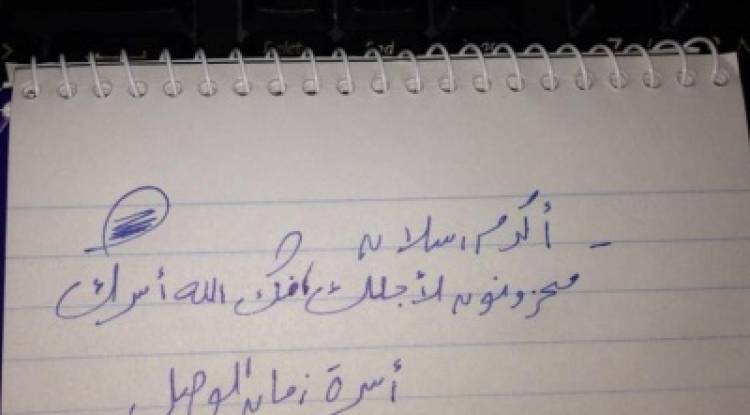 - أكرم رسلان
محزونون لأجلك، فك الله أسرك
أسرة زمان الوصل